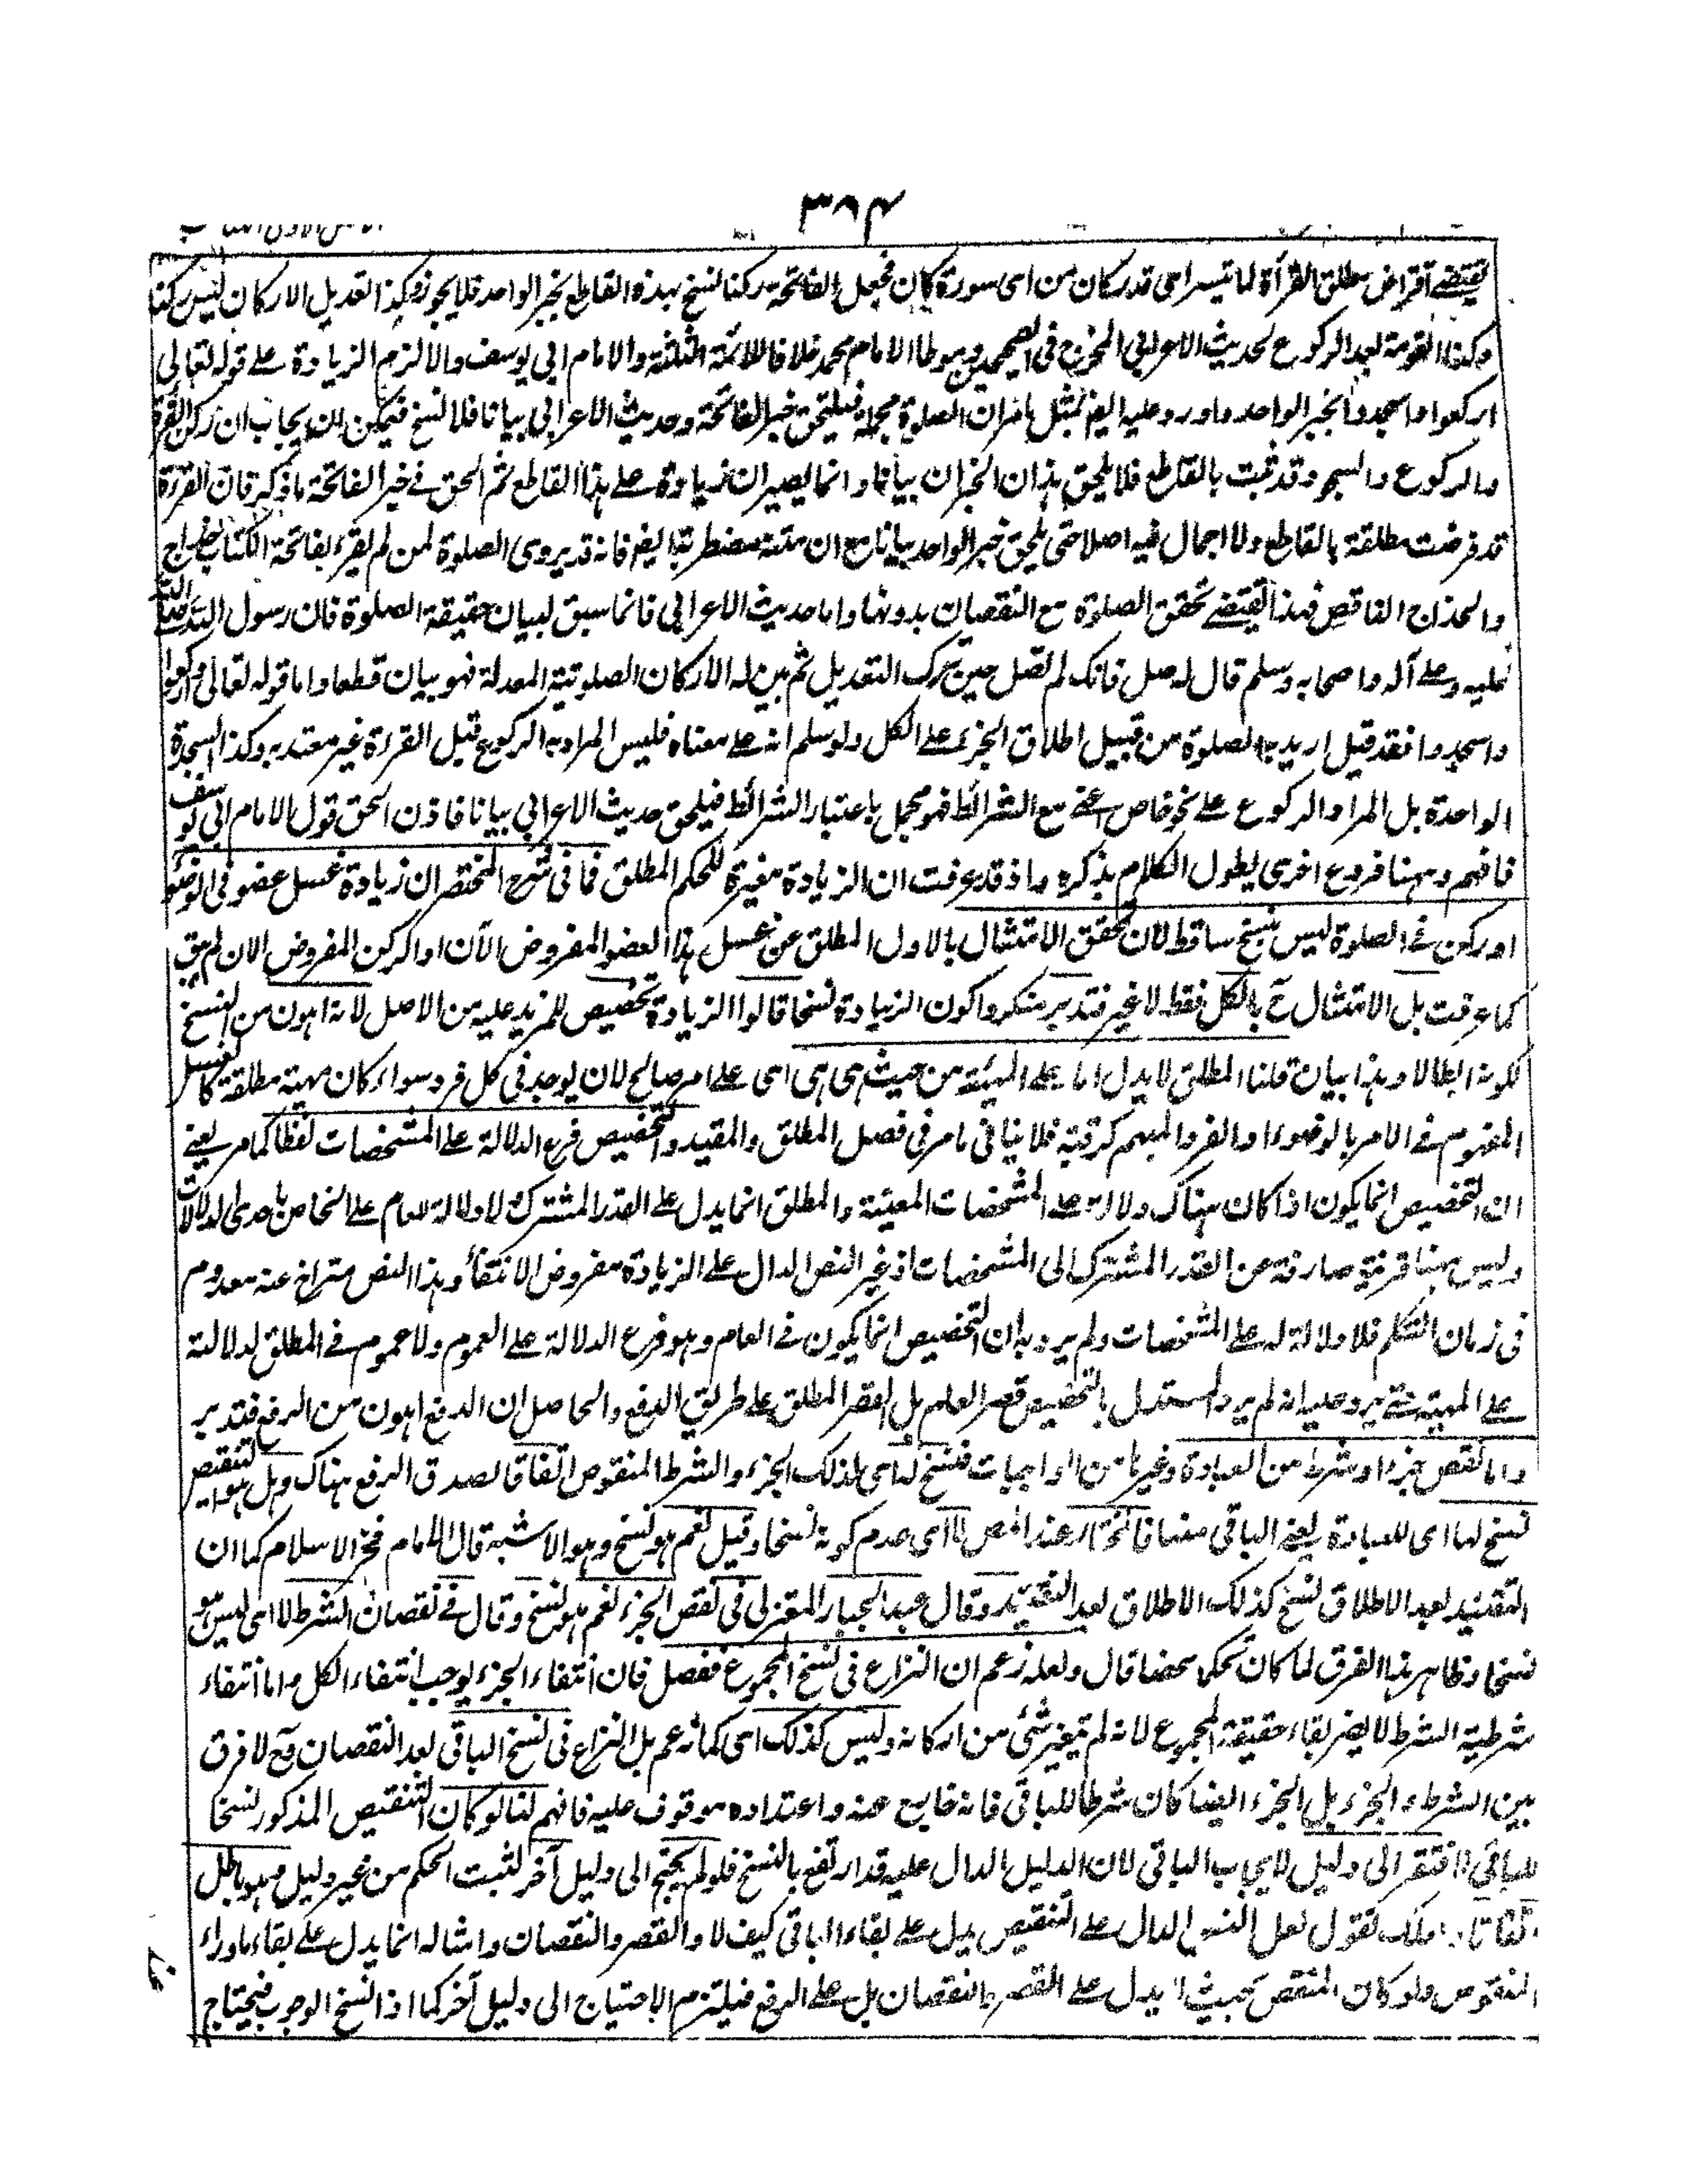 ۳۸۴
يقتضے افتراض مطلق القرأة لما تيسر اى قدر كان من اى سورة كان فجعل الفاتحة ركنا نسخ بهذه القاطع بخبر الواحد فلا يجوز وكذا تعديل الاركان ليس ركنا
وكذا القومة بعد الركوع لحديث الاعرابي المخرج فى الصحيحين وموطا الامام محمد خلافا للائمة الثلثة والامام ابى يوسف والا لزم الزيادة علے قوله تعالى
اركعوا واسجدوا بخبر الواحد واورد عليه ايض بمثل ما مر ان الصلوة مجملة فيلتحق خبر الفاتحة وحديث الاعرابي بيانا فلا نسخ فيمكن ان يجاب ان ركن القرأة
والركوع والسجود قد ثبت بالقاطع فلا يلحق هذان الخبران بيانا وانما يصيران زيادة علے هذا القاطع ثم الحق فے خبر الفاتحة ما ذكر فان القرأة
قد فرضت مطلقة بالقاطع ولا اجمال فيه اصلا حتى يلحق خبر الواحد بيانا مع ان متنه مضطربة ايض فانه قد يروى الصلوة لمن لم يقرء بفاتحة الكتاب خداج
والخداج الناقص فهذا يقتضے تحقق الصلوة مع النقصان بدونها واما حديث الاعرابي فانما سبق لبيان حقيقة الصلوة فان رسول الله صلے الله
عليه وعلے آله واصحابه وسلم قال له صل فانك لم تصل حين ترك التعديل ثم بين له الاركان الصلوتية المعدلة فهو بيان قطعا واما قوله تعالى واركعوا
واسجدوا فقد قيل اريد به الصلوة من قبيل اطلاق الجزء على الكل ولو سلم انه علے معناه فليس المراد به الركوع قبل القراءة غير معتد به وكذا السجدة
الواحدة بل المراد الركوع علے نحو خاص اعنے مع الشرائط فهو مجمل باعتبار الشرائط فيلحق حديث الاعرابي بيانا فاذن الحق قول الامام ابى يوسف
فافهم وههنا فروع اخرى يطول الكلام بذكره واذ قد عرفت ان الزيادة مغيرة للحكم المطلق فما فى شرح المختصر ان زيادة غسل عضو فى الوضوء
او ركن فے الصلوة ليس بنسخ ساقط لان تحقق الامتثال بالاول المطلق عن غسل هذا العضو المفروض الآن او الركن المفروض الان لم يبق
كما عرفت بل الامتثال ح بالكل فقط لا غير فتدبر منكروا كون الزيادة نسخا قالوا الزيادة تخصيص للمزيد عليه من الاصل لانه اهون من النسخ
لكونه ابطالا وهذا بيان قلنا المطلق لا يدل اما على المهية من حيث هى هى اى على امر صالح لان يوجد فى كل فرد سواء كان مهية مطلقة كالغسل
المفهوم فے الامر بالوضوء او الفرد المبهم كرقبة فلا ينافى ما مر فى فصل المطلق والمقيد والتخصيص فرع الدلالة علے المشخصات لفظا كما مر يعنے
ان التخصيص انما يكون اذا كان هناك دلالة علے المشخصات المعينة والمطلق انما يدل علے القدر المشترك ولا دلالة للعام على الخاص باحدى الدلالات
وليس ههنا قرينة صارفة عن القدر المشترك الى المشخصات اذ غير النص الدال على الزيادة مفروض الانتفاء وهذا النص متراخ عنه معدوم
فى زمان التكلم فلا دلالة له علے المشخصات ولم يرد به ان التخصيص انما يكون فے العام وهو فرع الدلالة علے العموم ولا عموم فے المطلق لدلالته
علے المهية حتے يرد عليه انه لم يرد المستدل بالتخصيص قصر العام بل القصر المطلق علے طريق الدفع والحاصل ان الدفع اهون من الرفع فتدبر
واما نقص جزء او شرط من العبادة وغيرها من الواجبات فنسخ له اى لذلك الجزء والشرط المنقوص اتفاقا لصدق الرفع هناك وهل هو اى التنقيص
نسخ لها اى للعبادة يعنے الباقى منها فالمختار عند المص لا اى عدم كونه نسخا وقيل نعم هو نسخ وهو الاشبه قال الامام فخر الاسلام كما ان
التقئيد بعد الاطلاق نسخ كذلك الاطلاق بعد التقئيد وقال عبد الجبار المعتزلى فى نقص الجزء نعم هو نسخ وقال فے نقصان الشرط لا اى ليس هو
نسخا وظاهر هذا الفرق لما كان تحكما محضا قال ولعله زعم ان النزاع فى نسخ المجموع ففصل فان انتفاء الجزء يوجب انتفاء الكل واما انتفاء
شرطية الشرط لا يضر بقاء حقيقة المجموع لانه لم يتغير شئ من اركانه وليس كذلك اى كما زعم بل النزاع فى نسخ الباقى بعد النقصان فح لا فرق
بين الشرط والجزء بل الجزء ايضا كان شرطا للباقى فانه خارج عنه واعتداده موقوف عليه فافهم لنا لو كان التنقيص المذكور نسخا
للباقى افتقر الى دليل لايجاب الباقى لان الدليل الدال عليه قد ارتفع بالنسخ فلو لم يحتج الى دليل آخر لثبت الحكم من غير دليل وهو باطل
اتفاقا ولعلك تقول لعل النسخ الدال على التنقيص يدل على بقاء الباقى كيف لا والقصر والنقصان وامثاله انما يدل علے بقاء ما وراء
المنقوص ولو كان المنقص بحيث لا يدل على القصر والنقصان بل على الرفع فيلتزم الاحتياج الى دليل آخر كما اذا نسخ الوجوب فيحتاج